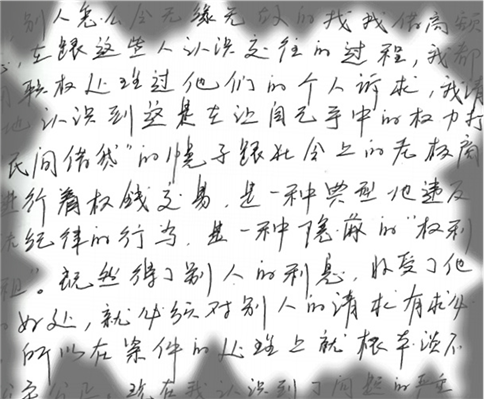 别人怎么会无缘无故的找我借高额
,在跟这些人认识交往的过程,我都
用职权处理过他们的个人诉求,我清
地认识到这是在让自己手中的权力打
民间借贷"的幌子跟社会上的老板商
进行着权钱交易,是一种典型地违反
纪律的行为,是一种隐蔽的"权利
租"。既然得了别人的利息,收受了他
好处,就必须对别人的请求有求必
所以在案件的处理上就根本谈不
现在我认识到了问题的严重